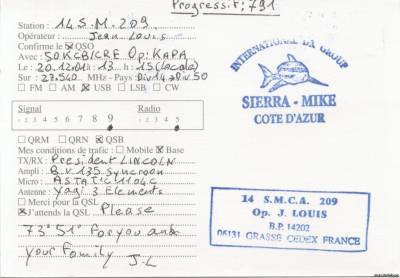 Progressif; 791
Station : 14.S.M.209
Opérateur : Jean Louis
Confirme le ☒ QSO
Avec : 50KCBICRE Op: KAPA
Le : 20.12.01 h : 13 h : 15 (locale)
Sur : 27.540 MHz - Pays : Div14 → Div50
☐ FM ☐ AM ☒ USB ☐ LSB ☐ CW
Signal Radio
1 2 3 4 5 6 7 8 9 1 2 3 4 5
☐ QRM ☐ QRN ☒ QSB
Mes conditions de trafic : ☐ Mobile ☒ Base
TX/RX : President LINCOLN
Ampli : B.V. 135 Syncron
Micro : ASTATIC 1104C
Antenne : Yagi 3 Elements
☐ Merci pour la QSL
☒ J'attends la QSL Please
73° 51° for you and
your family J-L
INTERNATIONAL DX GROUP
SIERRA - MIKE
COTE D'AZUR
14 S.M.C.A. 209
Op. J. LOUIS
B.P. 14202
06131 GRASSE CEDEX FRANCE